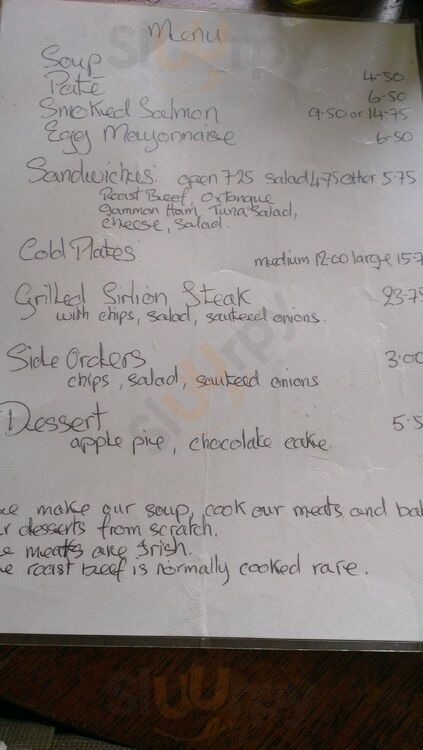 Menu
Soup 4-50
Paté 6-50
Smoked Salmon 9-50 or 14-75
Egg Mayonnaise 6-50
Sandwiches: open 7.25 salad 4.75 other 5.75
Roast Beef, Ox Tongue
Gammon Ham, Tuna Salad,
Cheese, Salad.
Cold Plates medium 12.00 large 15-7
Grilled Sirlion Steak 23-75
with chips, salad, sauteed onions.
Side Orders 3.00
chips, salad, sauteed onions
Dessert 5.5
apple pie, chocolate cake
we make our soup, cook our meats and bak
r desserts from scratch.
e meats are Irish.
e roast beef is normally cooked rare.
sluurpy
sluurpy
sluurpy